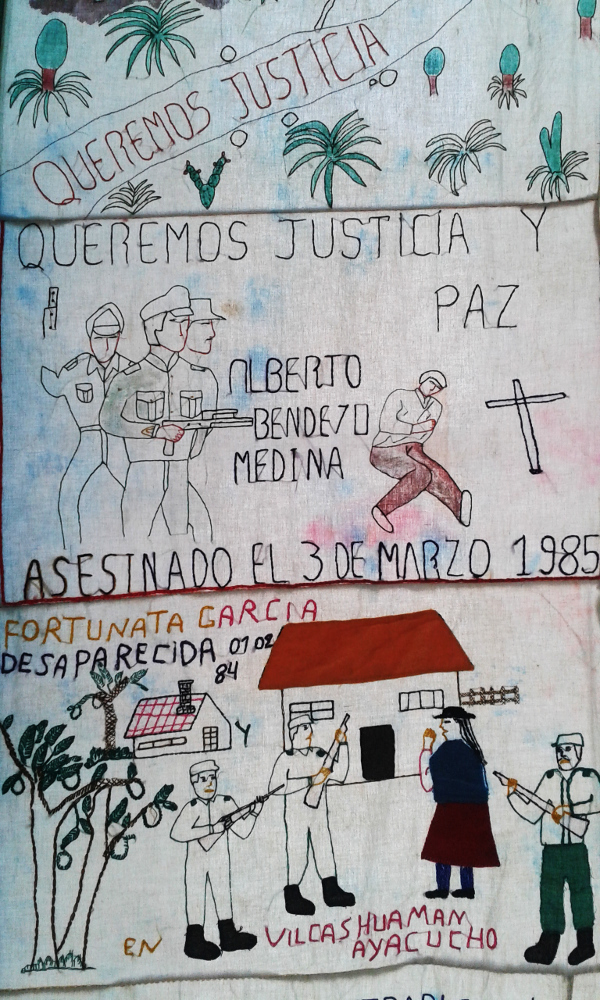 QUEREMOS JUSTICIA
QUEREMOS JUSTICIA Y
PAZ
ALBERTO
BENDEZO
MEDINA
ASESINADO EL 3 DE MARZO 1985
FORTUNATA GARCIA
DESAPARECIDA 07 02
84
Y
EN VILCASHUAMAN
AYACUCHO